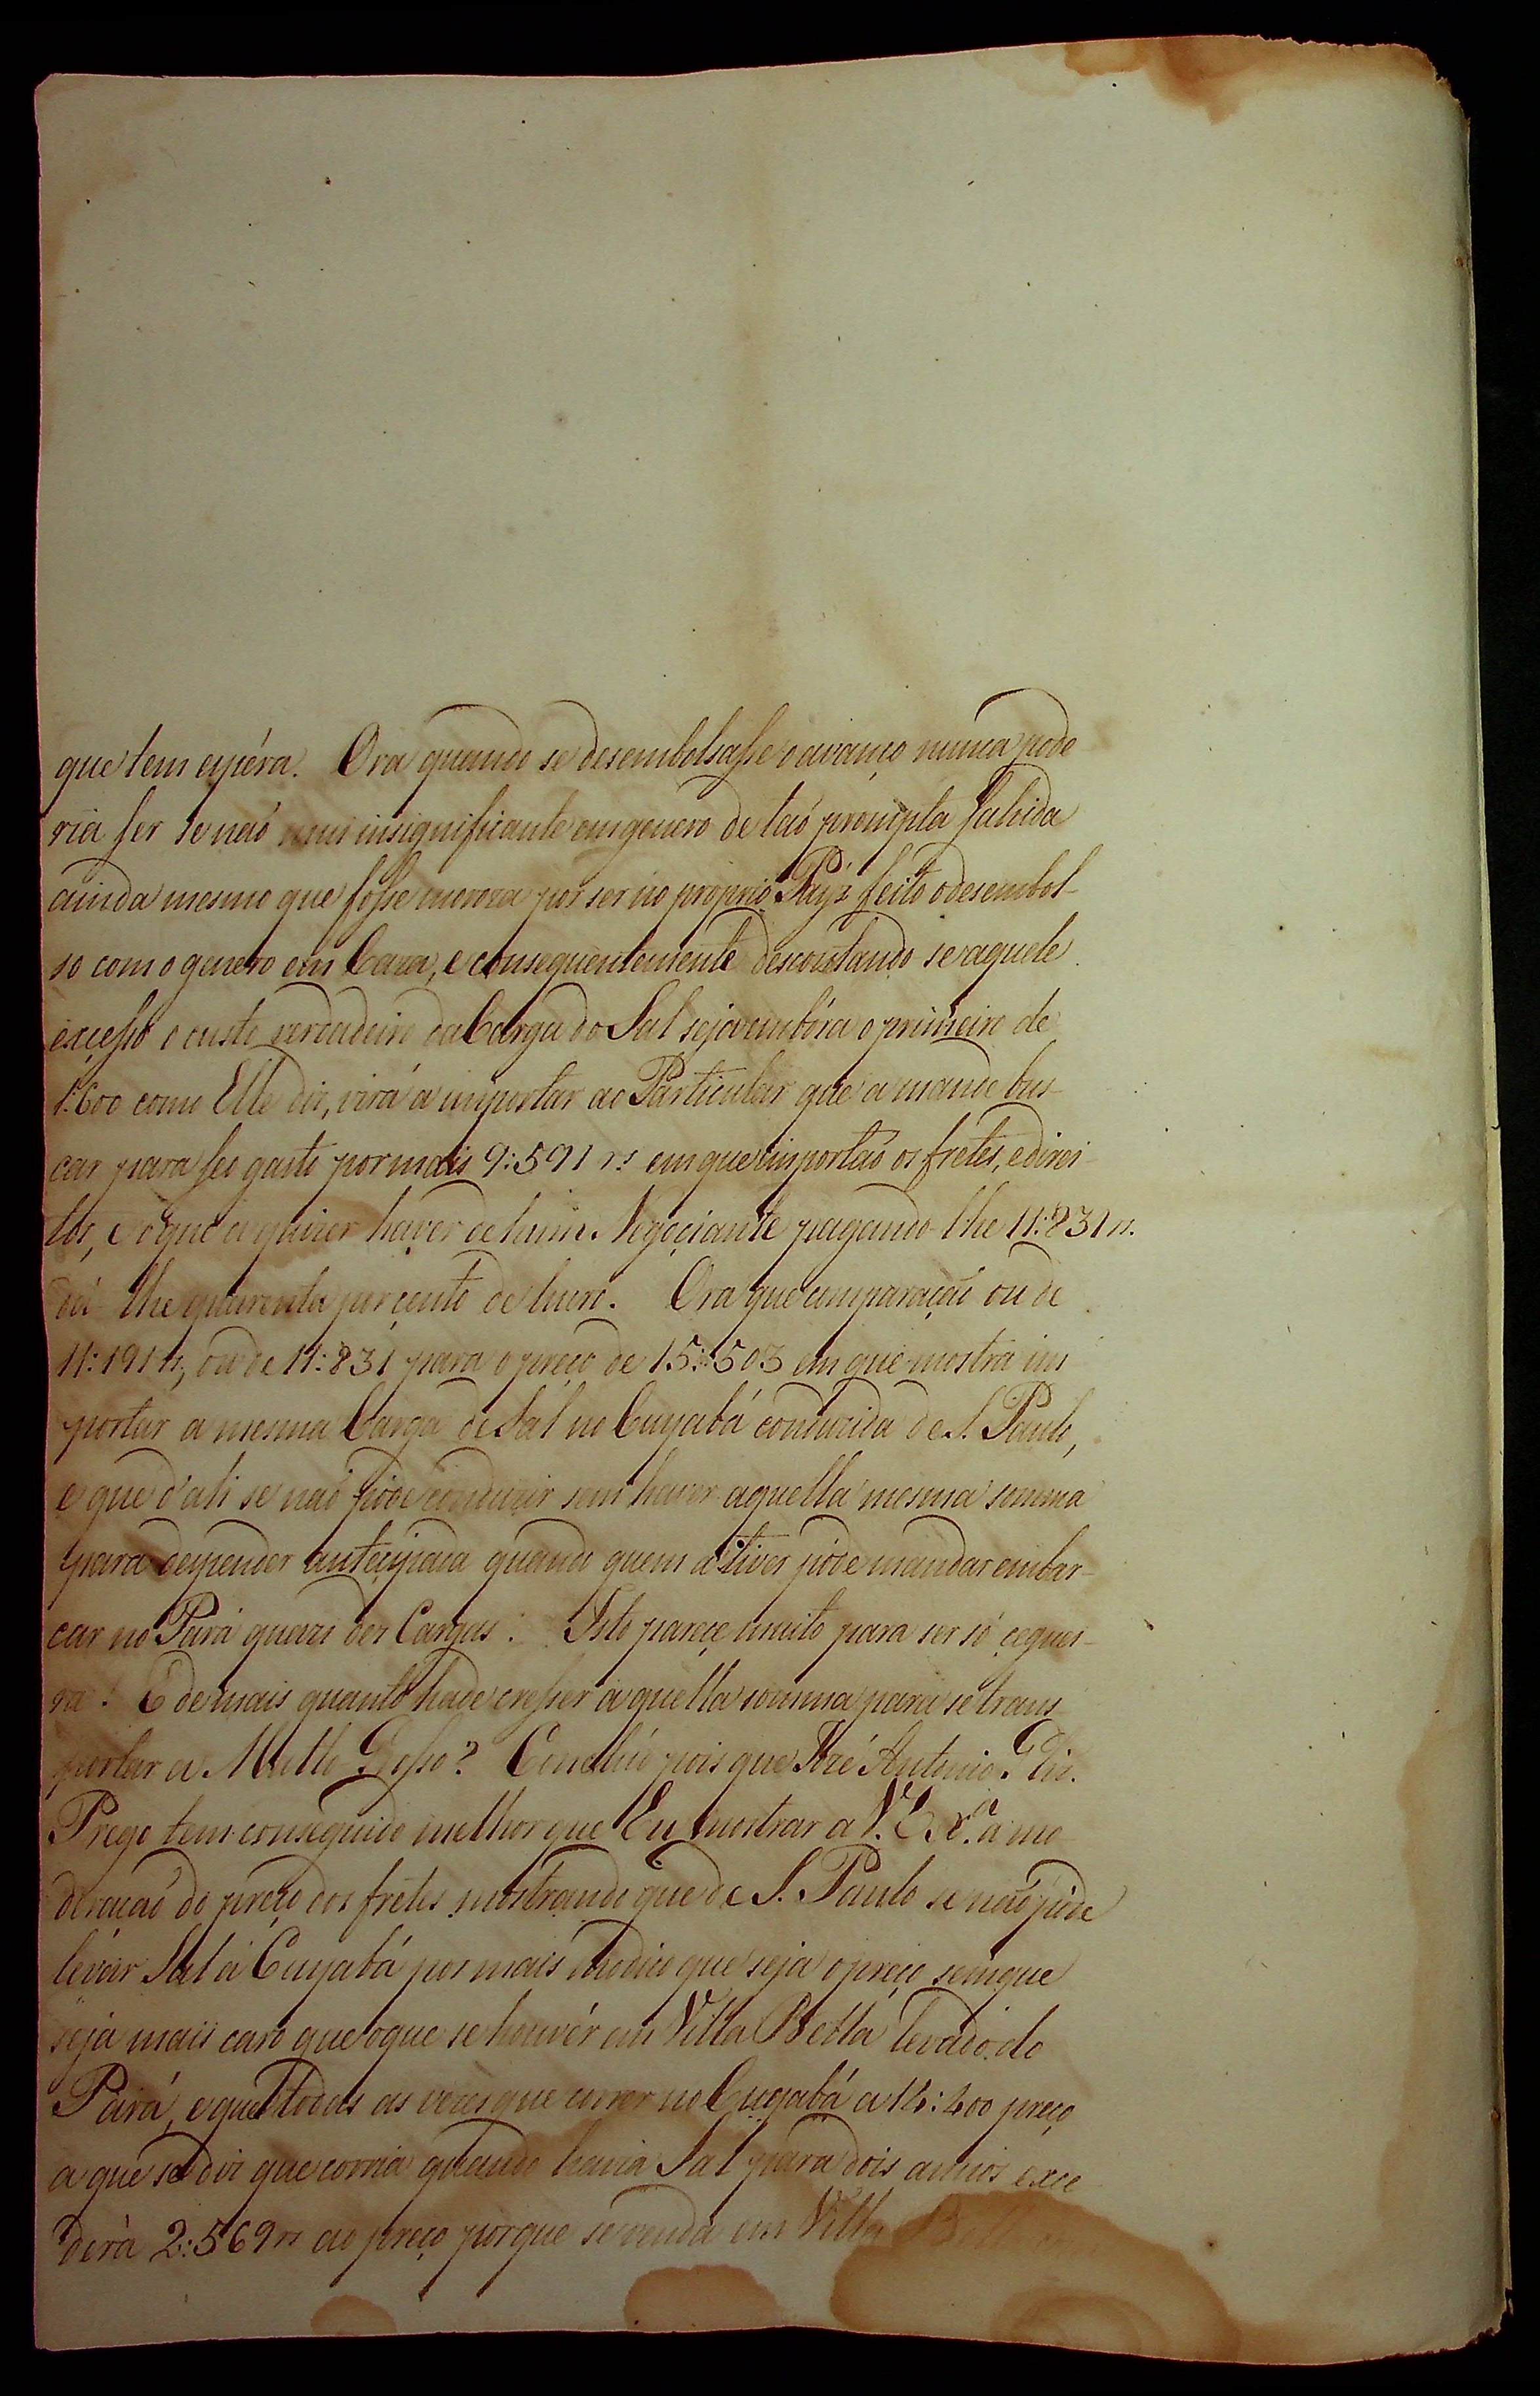 que tem espéra. Ora quando se desembolsasse o avanço nunca pode
ria ser se naõ mui insignificante em genero de taõ prompta sahida
ainda mesmo que fosse moroza por ser no proprio Payz feito o desembol-
so com o genero em Caza, e consequentemente descontando se aquele
excesso o custo verdadeiro da Carga do Sal seja embóra o primeiro de
1:600 como Elle diz, virá a importar ao Particular que a mande bus-
car para seo gasto por mais 9:591 rs em que importaõ os fretes, e direi-
tos, e o que a quizer haver de hum Negoçiante pagando-lhe 11:831 rs.
dá-lhe quarenta por çento de lucro. Ora que comparaçaõ ou de
11:191 rs, ou de 11:831 para o preço de 15:503 em que mostra im
portar a mesma Carga de Sal no Cuyabá conduzida de S. Paulo,
e que d'ali se naõ póde conduzir sem haver aquella mesma somma
para despender anteçipada quando quem a tiver póde mandar embar-
car no Pará quazi dez Cargas. Isto pareçe muito para ser só çeguei-
ra! E de mais quanto hade cresser aquella somma para se trans
portar a Matto Grosso? Concluó pois que Jozé Antonio Glz.
Prego tem conseguido melhor que Eu mostrar a V. Ex.ª a mo
deraçaõ do preço dos fretes mostrando que de S. Paulo se naõ póde
levár Sal a Cuyabá por mais modico que seja o preço sem que
seja mais caro que o que se houvér em Villa Bella levado do
Pará, e que todas as vezes que correr no Cuyabá a 14:400 preço
a que se diz que corria quando havia Sal para dois annos exce
derá 2:569 rs ao preço porque se venda em Villa Bella